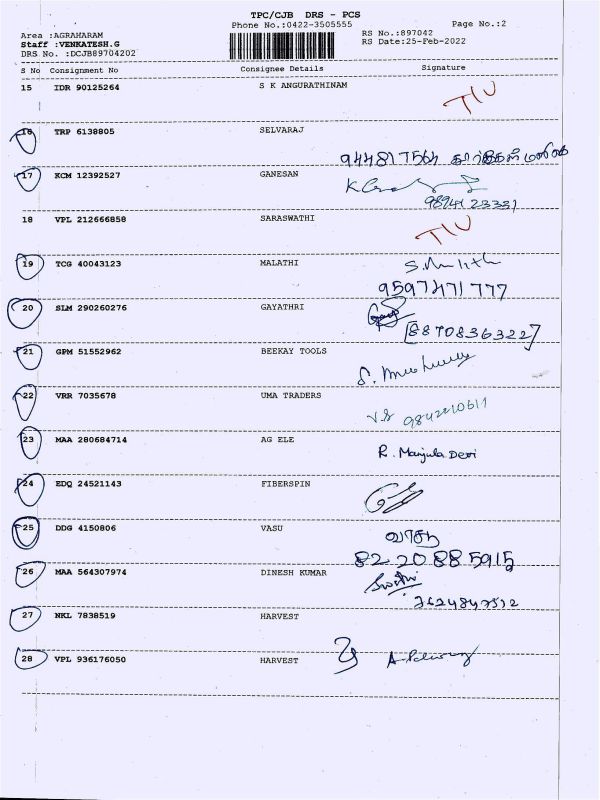 TPC/CJB DRS - PCS
Phone No.:0422-3505555 Page No.:2
Area :AGRAHARAM RS No.:897042
Staff :VENKATESH.G RS Date:25-Feb-2022
DRS No. :DCJB89704202
S No Consignment No Consignee Details Signature
15 IDR 90125264 S K ANGURATHINAM
16 TRP 6138805 SELVARAJ
17 KCM 12392527 GANESAN
18 VPL 212666858 SARASWATHI
19 TCG 40043123 MALATHI
9597471777
20 SLM 290260276 GAYATHRI
[8870836322]
21 GPM 51552962 BEEKAY TOOLS
22 VRR 7035678 UMA TRADERS
23 MAA 280684714 AG ELE R. Manjula Devi
24 EDQ 24521143 FIBERSPIN
25 DDG 4150806 VASU வாசு
82 20 88 5915
26 MAA 564307974 DINESH KUMAR
27 NKL 7838519 HARVEST
28 VPL 936176050 HARVEST